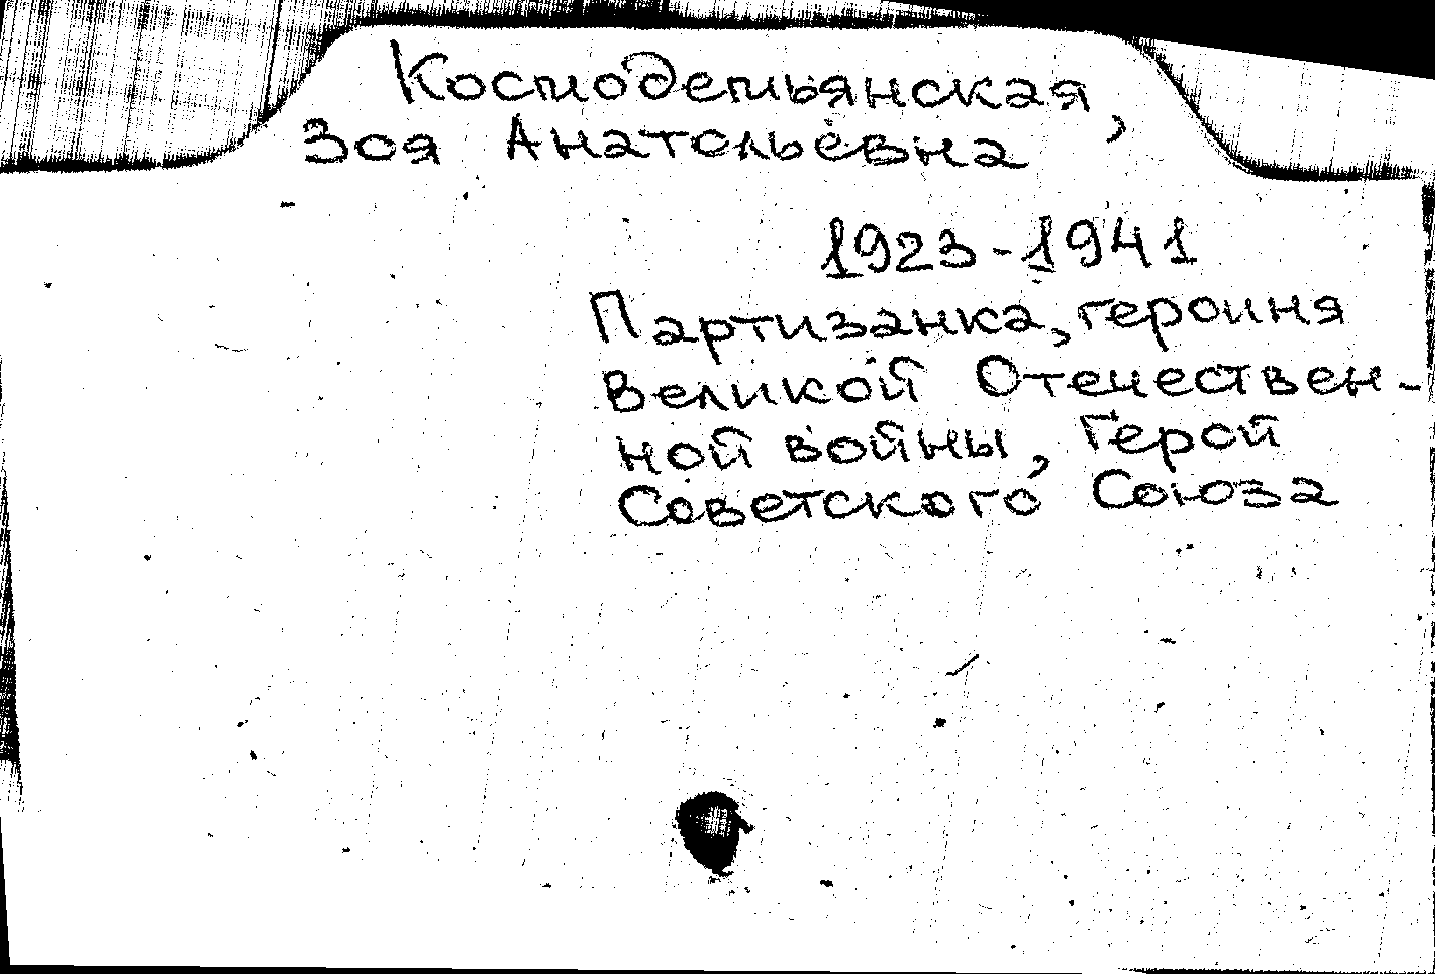 Космодемьянская,
Зоя Анатольевна
1923-1941
Партизанка, героиня
Великой Отечествен-
ной войны, Герой
Советского Союза